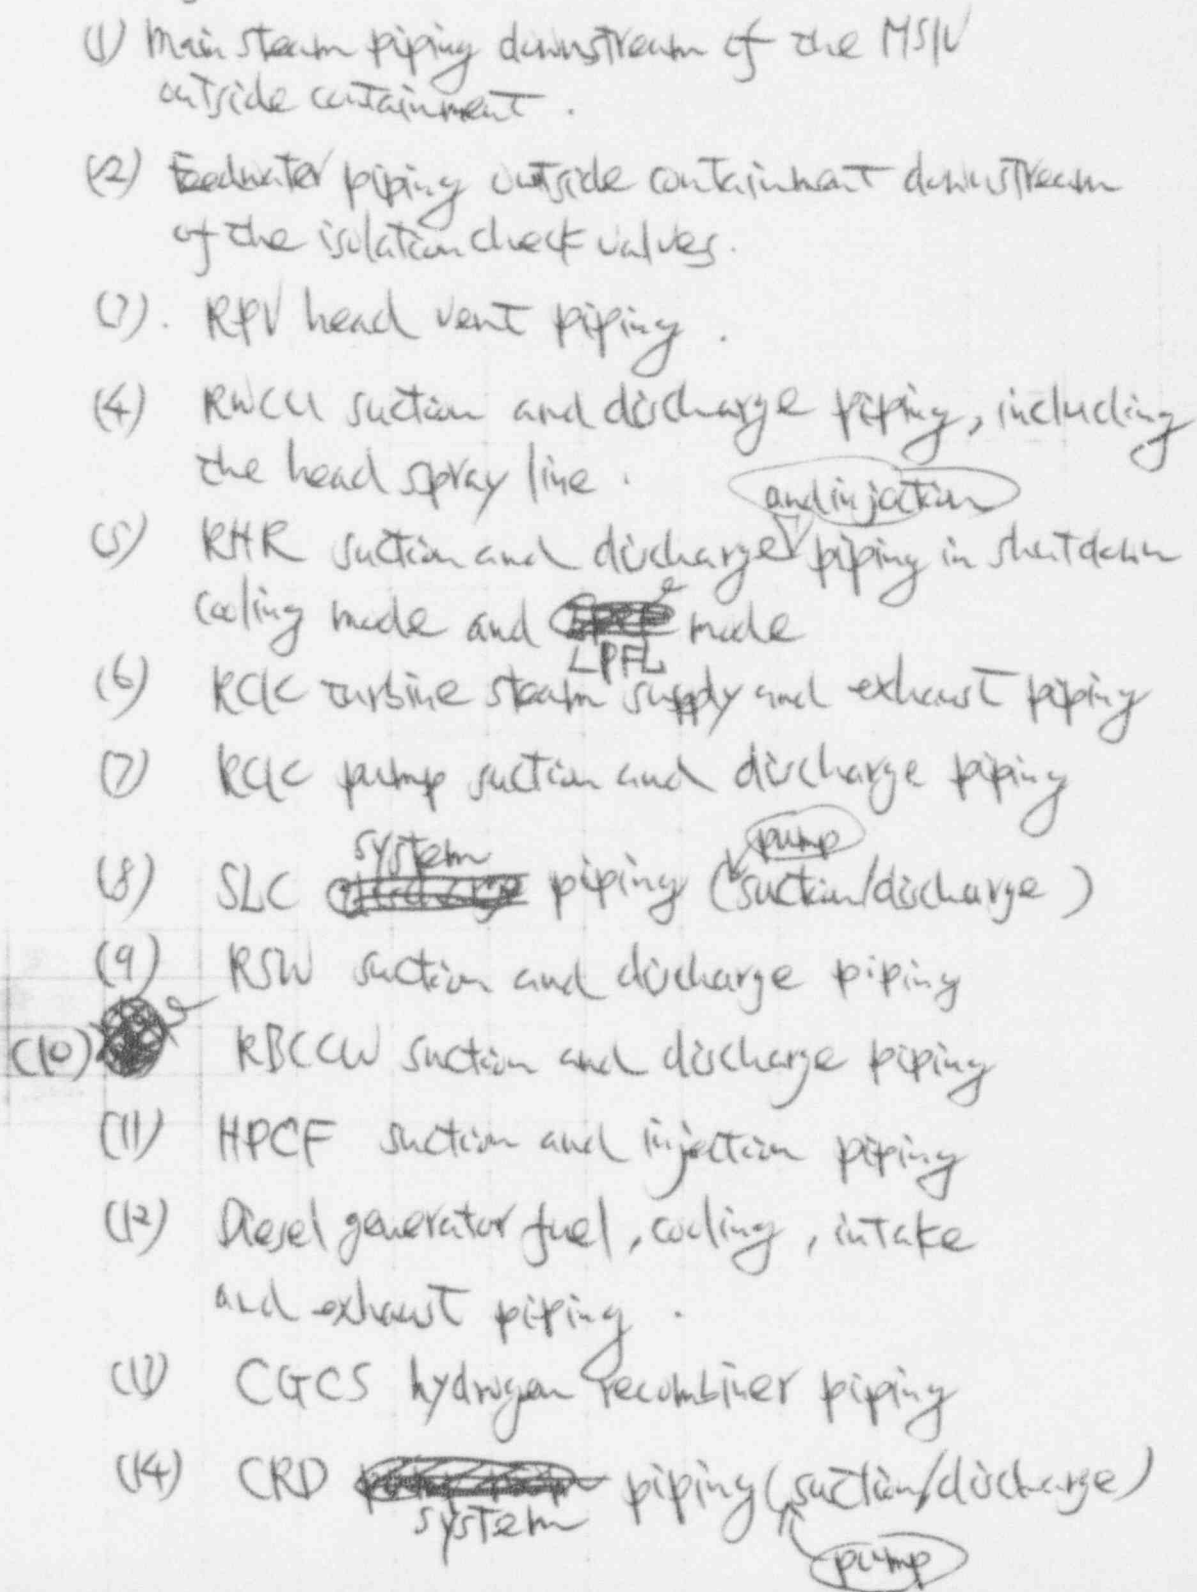 (1) Main steam piping downstream of the MSIV
outside containment.
(2) Feedwater piping outside containment downstream
of the isolation check valves.
(3). RPV head vent piping.
(4) RWCU suction and discharge piping, including
the head spray line.
and injection
(5) RHR suction and discharge piping in shutdown
cooling mode and mode
LPFL
(6) RCIC turbine steam supply and exhaust piping
(7) RCIC pump suction and discharge piping
system pump
(8) SLC piping (suction/discharge)
(9) RSW suction and discharge piping
(10) RBCCW suction and discharge piping
(11) HPCF suction and injection piping
(12) Diesel generator fuel, cooling, intake
and exhaust piping.
(13) CGCS hydrogen recombiner piping
(14) CRD piping (suction/discharge)
system
pump